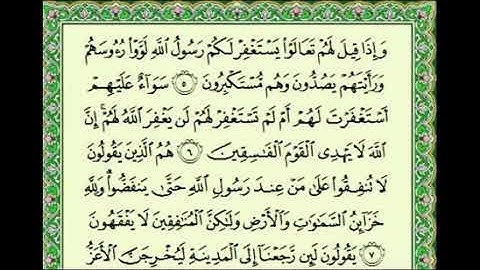 وَإِذَا قِيلَ لَهُمْ تَعَالَوْا۟ يَسْتَغْفِرْ لَكُمْ رَسُولُ ٱللَّهِ لَوَّوْا۟ رُءُوسَهُمْ
وَرَأَيْتَهُمْ يَصُدُّونَ وَهُم مُّسْتَكْبِرُونَ ٥ سَوَآءٌ عَلَيْهِمْ
أَسْتَغْفَرْتَ لَهُمْ أَمْ لَمْ تَسْتَغْفِرْ لَهُمْ لَن يَغْفِرَ ٱللَّهُ لَهُمْ ۚ إِنَّ
ٱللَّهَ لَا يَهْدِى ٱلْقَوْمَ ٱلْفَـٰسِقِينَ ٦ هُمُ ٱلَّذِينَ يَقُولُونَ
لَا تُنفِقُوا۟ عَلَىٰ مَنْ عِندَ رَسُولِ ٱللَّهِ حَتَّىٰ يَنفَضُّوا۟ ۗ وَلِلَّهِ
خَزَآئِنُ ٱلسَّمَـٰوَٰتِ وَٱلْأَرْضِ وَلَـٰكِنَّ ٱلْمُنَـٰفِقِينَ لَا يَفْقَهُونَ
٧ يَقُولُونَ لَئِن رَّجَعْنَآ إِلَى ٱلْمَدِينَةِ لَيُخْرِجَنَّ ٱلْأَعَزُّ